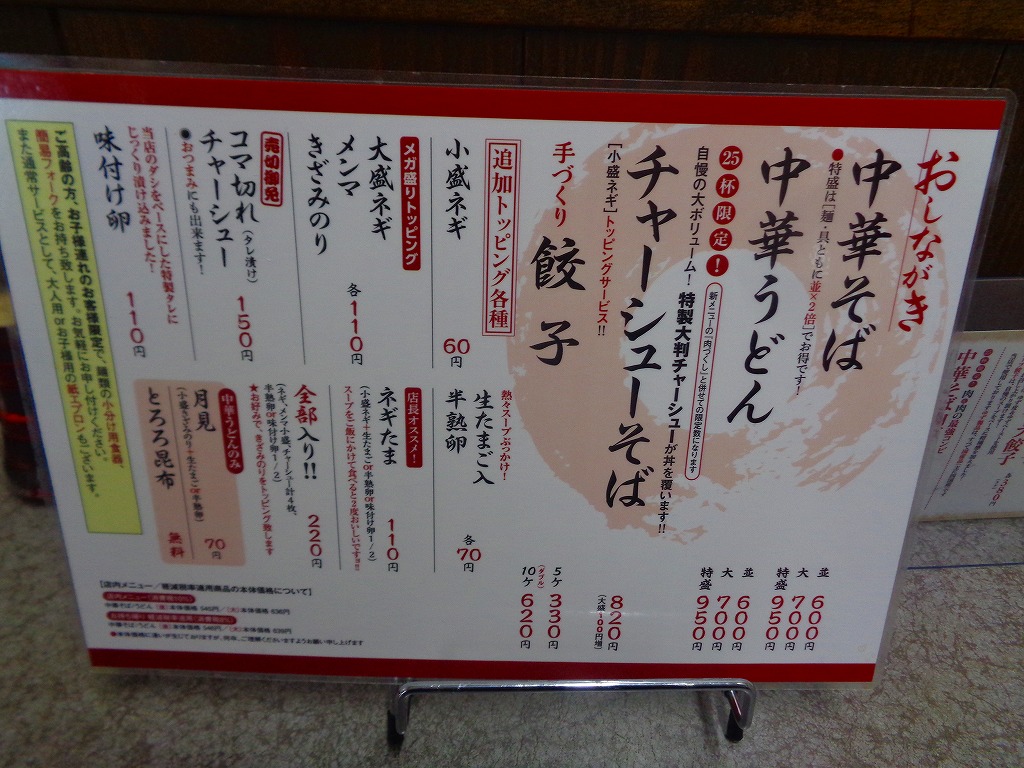 おしながき
中華そば
●特盛は[麺・具ともに並×2倍]でお得です!
並 600円
大 700円
特盛 950円
中華うどん
並 600円
大 700円
特盛 950円
25杯限定!
新メニューの『肉づくし』と併せての限定数になります
自慢の大ボリューム!特製大判チャーシューが丼を覆います!!
チャーシューそば
[小盛ネギ]トッピングサービス!!
820円
(大盛100円増)
手づくり 餃子
5ケ 330円
(ダブル)
10ケ 620円
追加トッピング各種
小盛ネギ
60円
メガ盛りトッピング
大盛ネギ
メンマ
きざみのり
各110円
売切御免
コマ切れ(タレ漬け)
チャーシュー
150円
●おつまみにも出来ます!
当店のダシをベースにした特製タレに
じっくり漬け込みました!
味付け卵
110円
熱々スープぶっかけ!
生たまご入
半熟卵
各70円
店長オススメ!
ネギたま
110円
(小盛ネギ+生たまor半熟卵or味付け卵1/2)
スープをご飯にかけて食べると2度おいしいですョ!!
全部入り!!
220円
(ネギ、メンマ小盛、チャーシュー計4枚、
半熟卵or味付け卵1/2)
★お好みで、きざみのりをトッピング致します
中華うどんのみ
月見
70円
(小盛きざみのり+生たまor半熟卵)
とろろ昆布
無料
ご高齢の方、お子様連れのお客様限定で、麺類の小分け用食器、
簡易フォークをお持ち致します。お気軽にお申し付けください。
また通常サービスとして、大人用orお子様用の紙エプロンもございます。
【店内メニュー/軽減税率適用商品の本体価格について】
店内メニュー[消費税10%]
中華そば/うどん [並]本体価格 545円/[大]本体価格 636円
お持ち帰り 軽減税率適用[消費税8%]
●本体価格に違いが生じておりますが、何卒、ご理解くださいますようお願い申し上げます